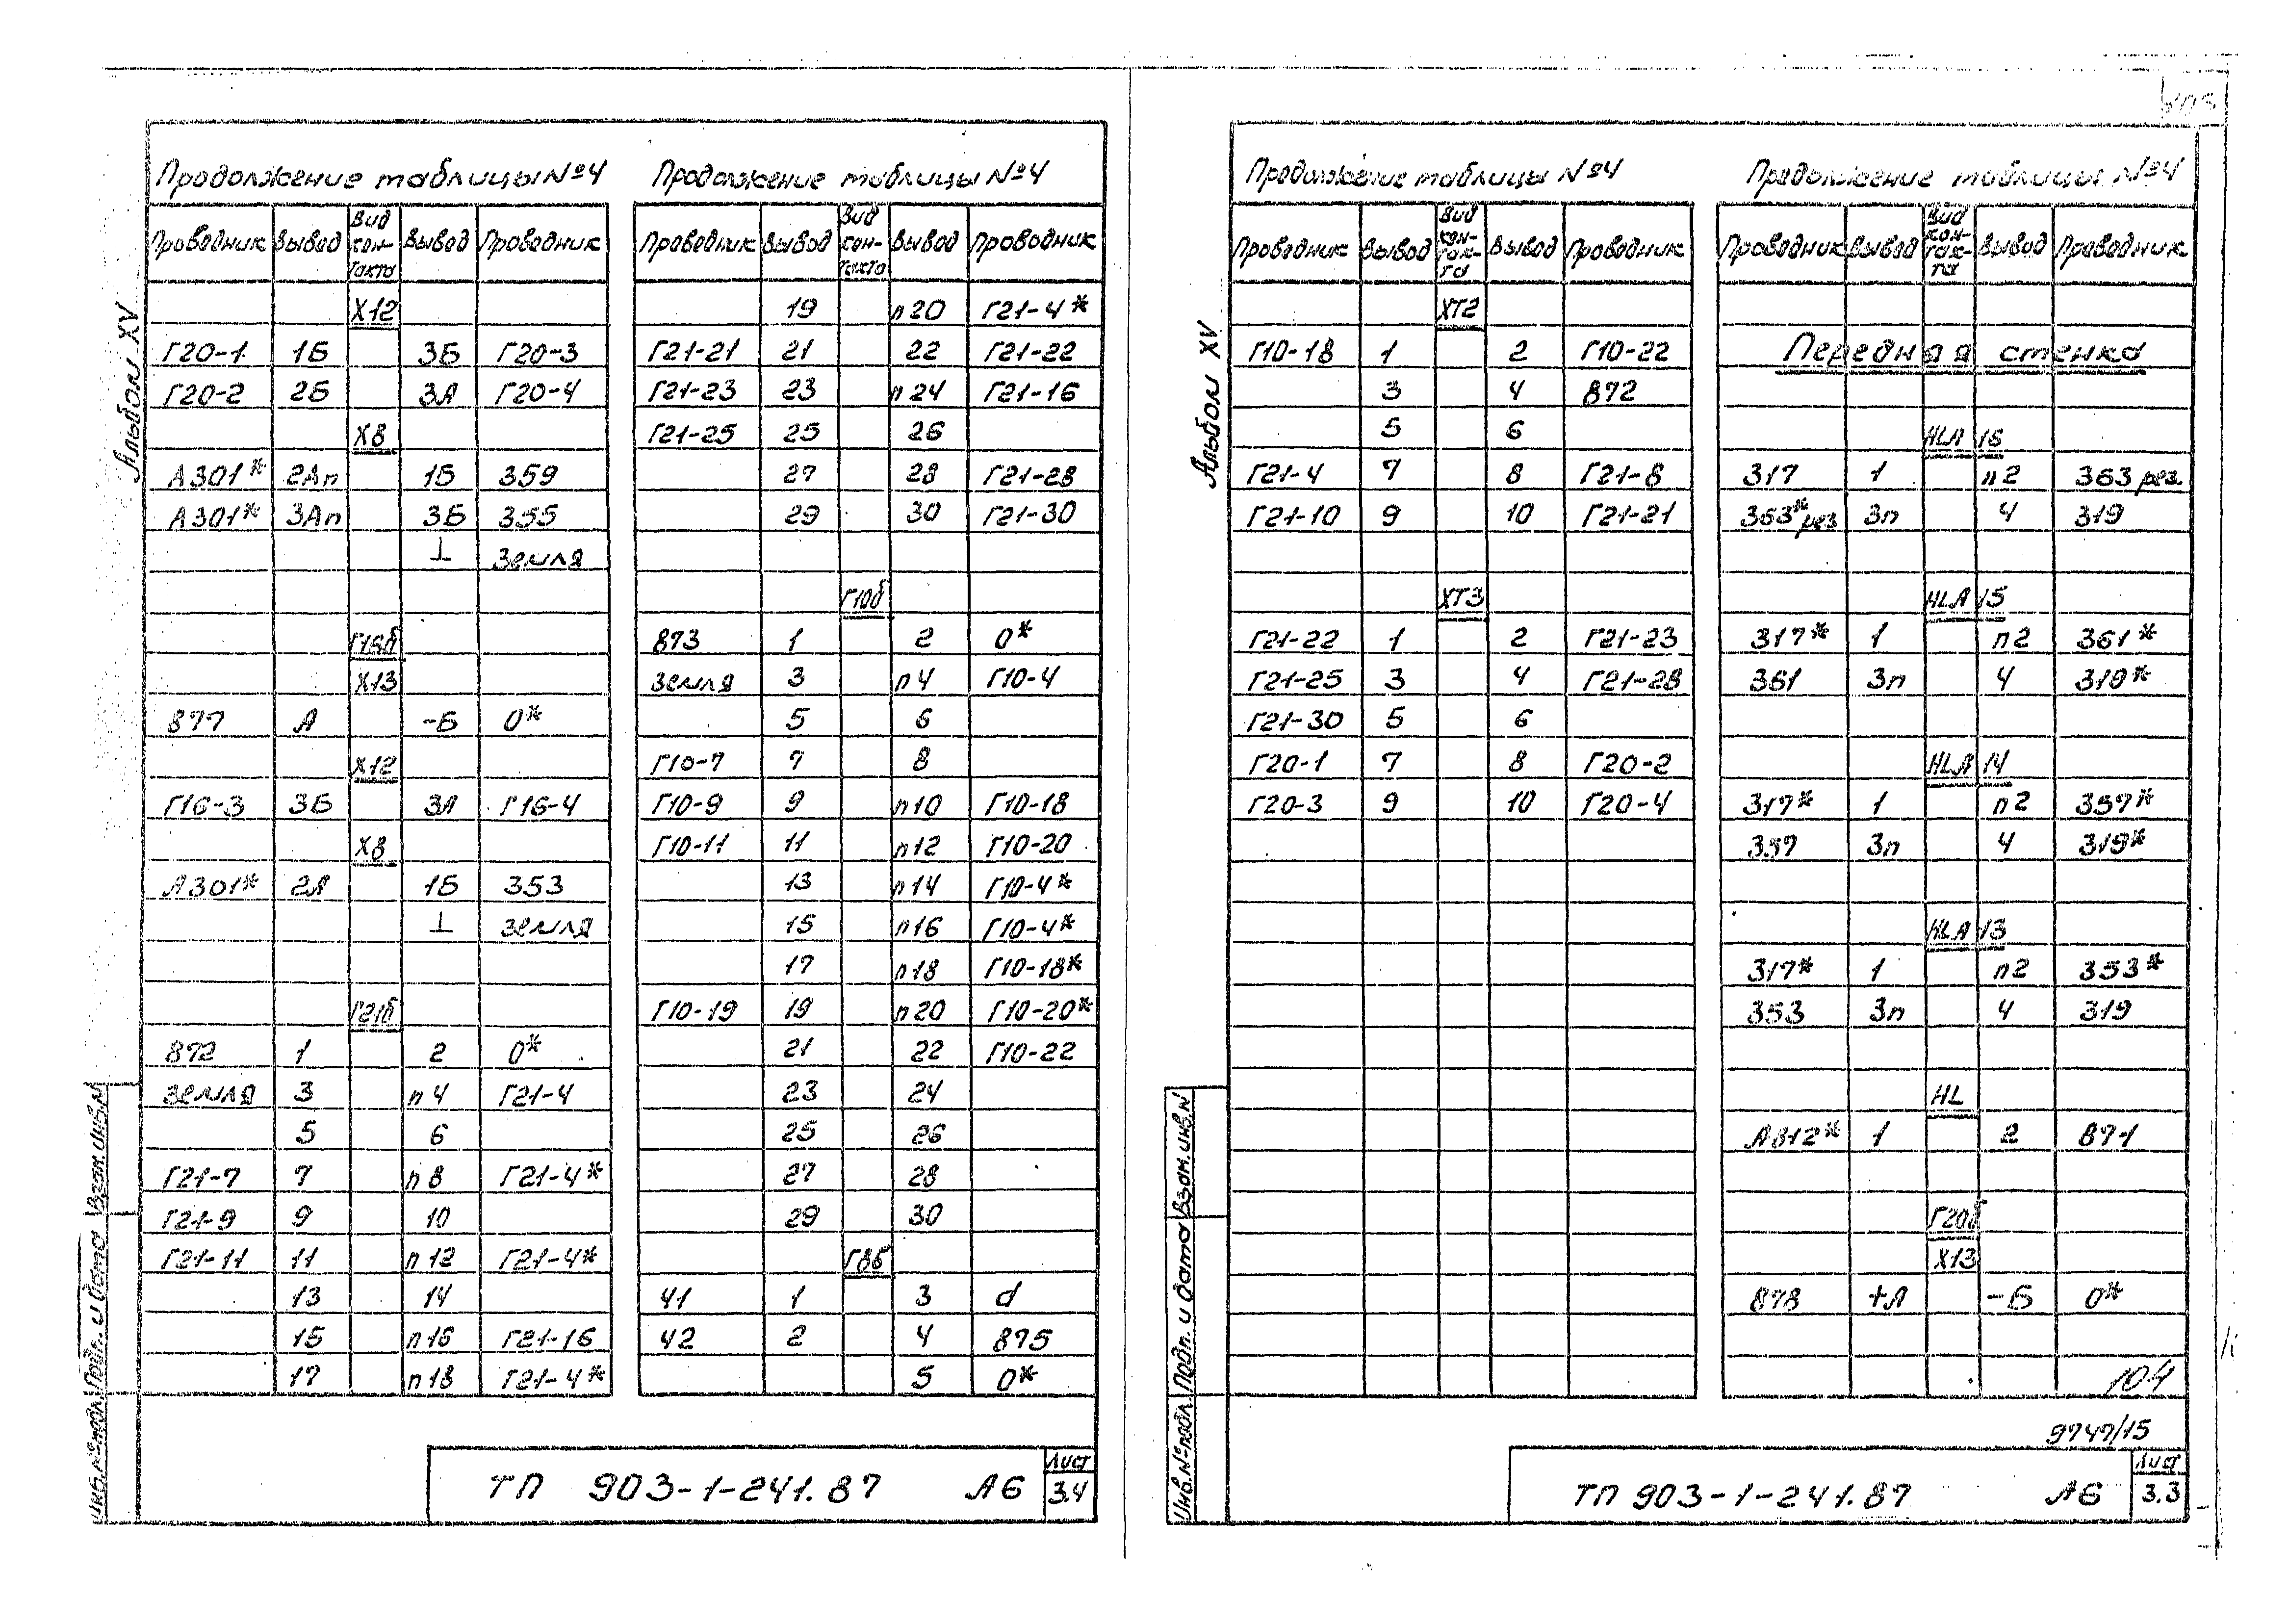 Альбом XV
Продолжение таблицы №4
Проводник Вывод Вид кон-такта Вывод Проводник
X12
Г20-1 1Б 3Б Г20-3
Г20-2 2Б 3А Г20-4
X8
А301* 2Ап 1Б 359
А301* 3Ап 3Б 355
⊥ Земля
Г16б
X13
877 А -Б 0*
X12
Г16-3 3Б 3А Г16-4
X8
А301* 2А 1Б 353
⊥ земля
Г21б
872 1 2 0*
земля 3 п4 Г21-4
5 6
Г21-7 7 п8 Г21-4*
Г21-9 9 10
Г21-11 11 п12 Г21-4*
13 14
15 п16 Г21-16
17 п18 Г21-4*
Продолжение таблицы №4
Проводник Вывод Вид кон-такта Вывод Проводник
19 п20 Г21-4*
Г21-21 21 22 Г21-22
Г21-23 23 п24 Г21-16
Г21-25 25 26
27 28 Г21-28
29 30 Г21-30
Г10б
873 1 2 0*
земля 3 п4 Г10-4
5 6
Г10-7 7 8
Г10-9 9 п10 Г10-18
Г10-11 11 п12 Г10-20
13 п14 Г10-4*
15 п16 Г10-4*
17 п18 Г10-18*
Г10-19 19 п20 Г10-20*
21 22 Г10-22
23 24
25 26
27 28
29 30
Г8б
41 1 3 d
42 2 4 875
5 0*
Взам. инв.№
Подп. и дата
Инв.№ подл.
ТП 903-1-241.87 А6
Лист
3.4
Альбом XV
Продолжение таблицы №4
Проводник Вывод Вид кон-так-та Вывод Проводник
XT2
Г10-18 1 2 Г10-22
3 4 872
5 6
Г21-4 7 8 Г21-8
Г21-10 9 10 Г21-21
XT3
Г21-22 1 2 Г21-23
Г21-25 3 4 Г21-28
Г21-30 5 6
Г20-1 7 8 Г20-2
Г20-3 9 10 Г20-4
Продолжение таблицы №4
Проводник Вывод Вид кон-так-та Вывод Проводник
Передняя стенка
HLA 16
317 1 п2 363 рез.
363* рез 3п 4 319
HLA 15
317* 1 п2 361*
361 3п 4 319*
HLA 14
317* 1 п2 357*
357 3п 4 319*
HLA 13
317* 1 п2 353*
353 3п 4 319
HL
А812* 1 2 871
Г20б
X13
878 +А -Б 0*
104
9747/15
Взам. инв.№
Подп. и дата
Инв.№ подл.
ТП 903-1-241.87 А6
Лист
3.3